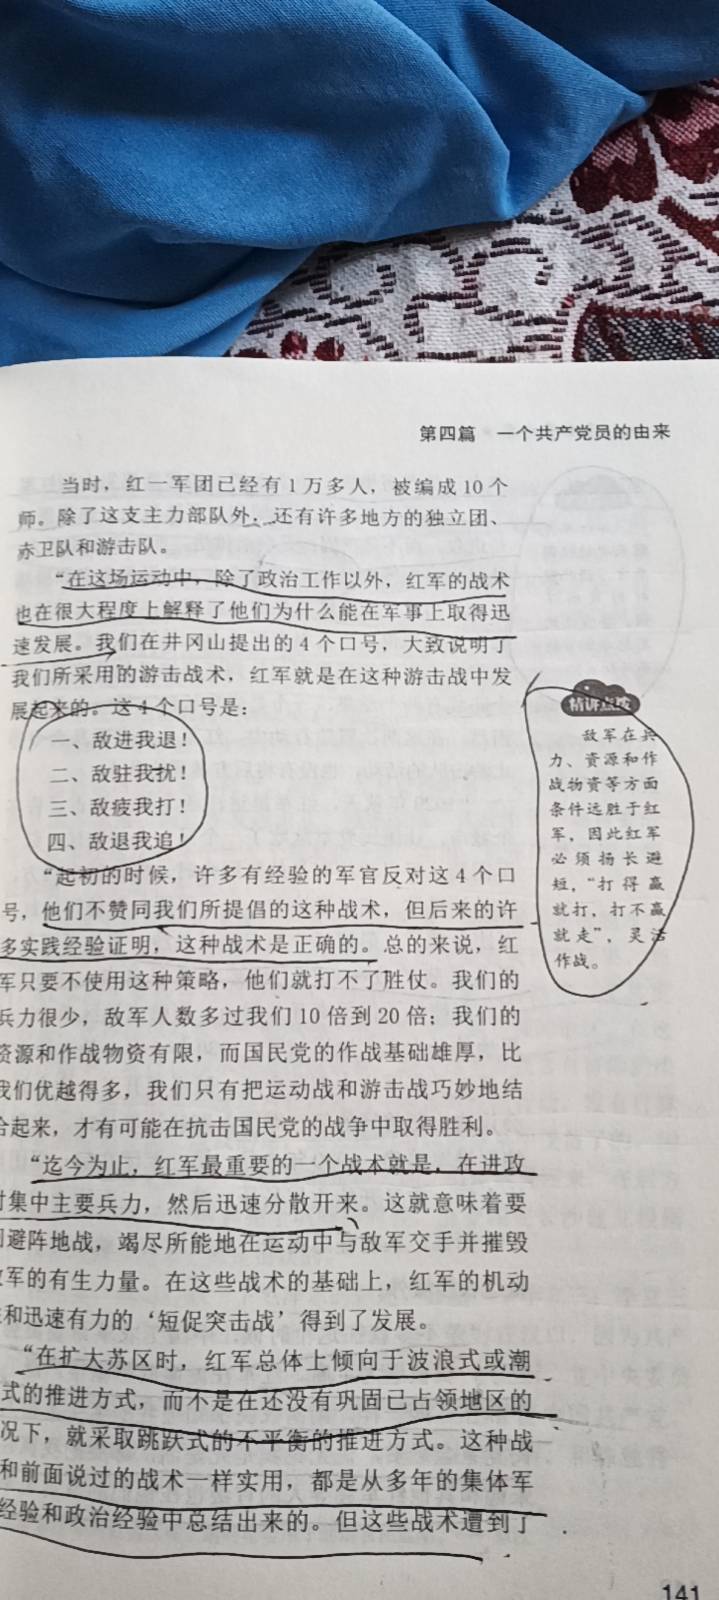 第四篇 一个共产党员的由来
当时，红一军团已经有1万多人，被编成10个
师。除了这支主力部队外，还有许多地方的独立团、
赤卫队和游击队。
“在这场运动中，除了政治工作以外，红军的战术
也在很大程度上解释了他们为什么能在军事上取得迅
速发展。我们在井冈山提出的4个口号，大致说明了
我们所采用的游击战术，红军就是在这种游击战中发
展起来的。这4个口号是：
一、敌进我退！
二、敌驻我扰！
三、敌疲我打！
四、敌退我追！
“起初的时候，许多有经验的军官反对这4个口
号，他们不赞同我们所提倡的这种战术，但后来的许
多实践经验证明，这种战术是正确的。总的来说，红
军只要不使用这种策略，他们就打不了胜仗。我们的
兵力很少，敌军人数多过我们10倍到20倍；我们的
资源和作战物资有限，而国民党的作战基础雄厚，比
我们优越得多，我们只有把运动战和游击战巧妙地结
合起来，才有可能在抗击国民党的战争中取得胜利。
“迄今为止，红军最重要的一个战术就是，在进攻
时集中主要兵力，然后迅速分散开来。这就意味着要
避阵地战，竭尽所能地在运动中与敌军交手并摧毁
敌军的有生力量。在这些战术的基础上，红军的机动
和迅速有力的‘短促突击战’得到了发展。
“在扩大苏区时，红军总体上倾向于波浪式或潮
式的推进方式，而不是在还没有巩固已占领地区的
况下，就采取跳跃式的不平衡的推进方式。这种战
和前面说过的战术一样实用，都是从多年的集体军
经验和政治经验中总结出来的。但这些战术遭到了
精讲点拨
敌军在兵
力、资源和作
战物资等方面
条件远胜于红
军，因此红军
必须扬长避
短，“打得赢
就打，打不赢
就走”，灵活
作战。
141